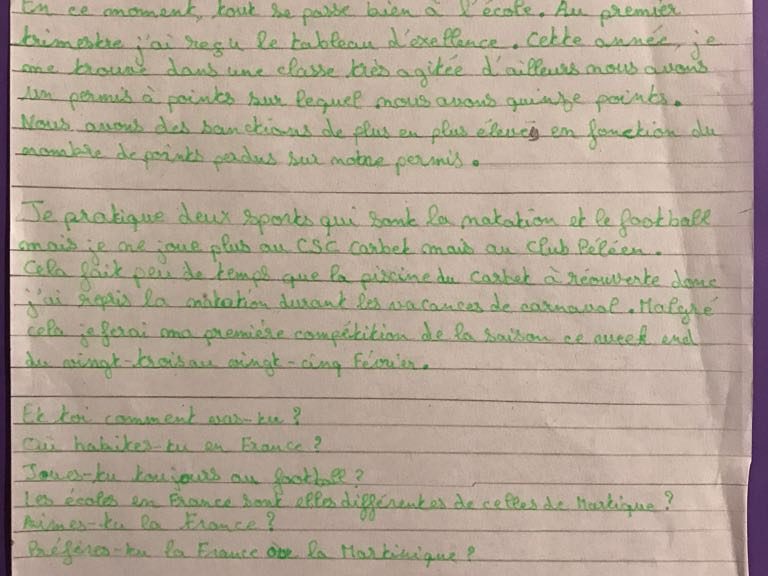 En ce moment, tout se passe bien à l'école. Au premier
trimestre j'ai reçu le tableau d'exellence. Cette année, je
me trouve dans une classe très agitée d'ailleurs nous avons
un permis à points sur lequel nous avons quinze points.
Nous avons des sanctions de plus en plus élevés en fonction du
nombre de points perdus sur notre permis.
Je pratique deux sports qui sont la natation et le football
mais je ne joue plus au CSC Carbet mais au Club Péléen.
Cela fait peu de temps que la piscine du Carbet à réouverte donc
j'ai repris la natation durant les vacances de carnaval. Malgré
cela je ferai ma première compétition de la saison ce week end
du vingt-trois au vingt-cinq Février.
Et toi comment vas-tu ?
Où habites-tu en France ?
Joues-tu toujours au football ?
Les écoles en France sont elles différentes de celles de Martique ?
Aimes-tu la France ?
Préfères-tu la France ou la Martinique ?